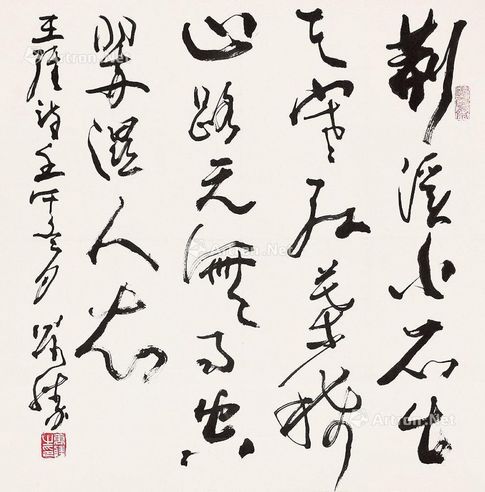 荆溪白石出
天寒红葉稀
山路元無雨空
翠濕人衣
王維诗壬午冬月
Artron.Net
Artron.Net
Artron.Net